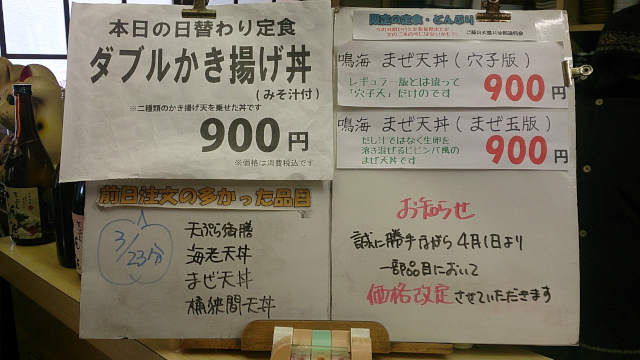 本日の日替わり定食
ダブルかき揚げ丼
(みそ汁付)
※二種類のかき揚げ天を乗せた丼です
900円
※価格は消費税込です
前日注文の多かった品目
3/23分
天ぷら御膳
海老天丼
まぜ天丼
桶狭間天丼
限定の定食・どんぶり
ご飯の大盛りは別途料金
鳴海 まぜ天丼(穴子版)
レギュラー版とは違って
「穴子天」だけのです
900円
鳴海 まぜ天丼(まぜ玉版)
だし汁ではなく生卵を
溶き混ぜるビビンバ風の
まぜ天丼です
900円
お知らせ
誠に勝手ながら4月1日より
一部品目において
価格改定させていただきます